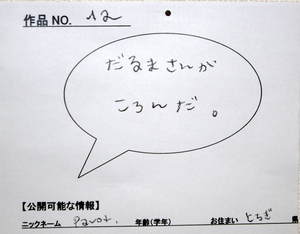 作品NO. 12
だるまさんが
ころんだ。
【公開可能な情報】
ニックネーム Parot. 年齢(学年) お住まい とちぎ 県